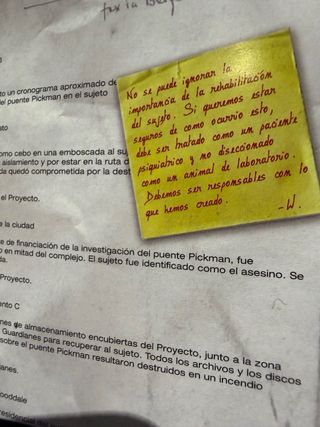 to un cronograma aproximado de
el puente Pickman en el sujeto
No se puede ignorar la
importancia de la rehabilitación
del sujeto. Si queremos estar
seguros de como ocurrio esto,
debe ser tratado como un paciente
psiquiatrico y no diseccionado
como un animal de laboratorio.
Debemos ser responsables con lo
que hemos creado.
-W.
omo cebo en una emboscada al su
aislamiento y por estar en la ruta d
da quedó comprometida por la dest
el Proyecto.
e la ciudad
e de financiación de la investigación del puente Pickman, fue
o en mitad del complejo. El sujeto fue identificado como el asesino. Se
da.
Proyecto.
nto C
nes de almacenamiento encubiertas del Proyecto, junto a la zona
Guardianes para recuperar al sujeto. Todos los archivos y los discos
sobre el puente Pickman resultaron destruidos en un incendio
ianes.
ooddale
residencial del